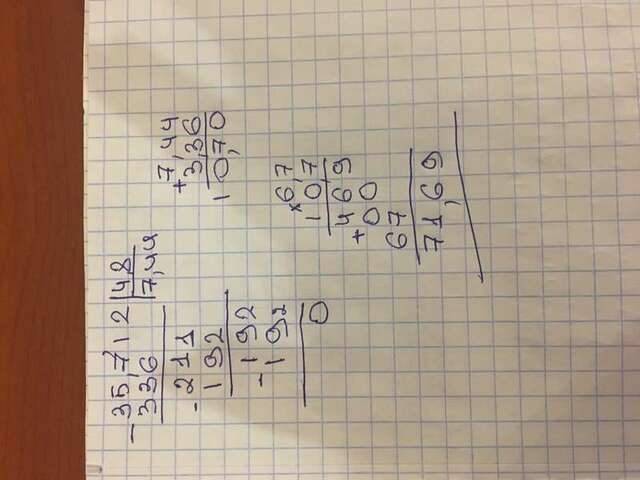 -35,712 |48
336 |7,44
-211
192
-192
192
0
7,44
+
3,36
10,70
×6,7
10,7
469
+00
67
71,69